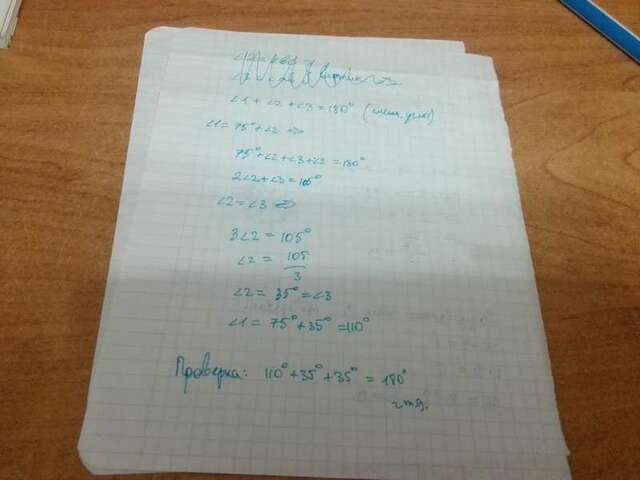 ∠1 + ∠2 + ∠3 = 180° (смеж. углы)
∠1 = 75° + ∠2 =>
75° + ∠2 + ∠3 + ∠2 = 180°
2∠2 + ∠3 = 105°
∠2 = ∠3 =>
3∠2 = 105°
∠2 = 105/3
∠2 = 35° = ∠3
∠1 = 75° + 35° = 110°
Проверка: 110° + 35° + 35° = 180°
ч.т.д.